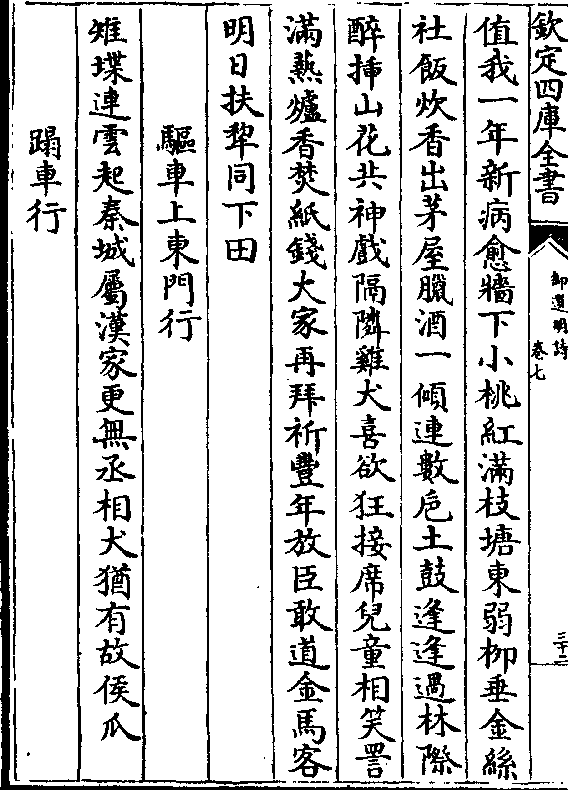 欽定四庫全書
御選明詩
卷七
三十二
值我一年新病愈牆下小桃紅滿枝塘東弱柳垂金絲
社飯炊香出茅屋臘酒一傾連數巵土鼓逢逢過林際
醉揷山花共神戲隔隣雞犬喜欲狂接席兒童相笑詈
滿熱爐香焚紙錢大家再拜祈豐年放臣敢道金馬客
明日扶犂同下田
驅車上東門行
雉堞連雲起秦城屬漢家更無丞相犬猶有故侯瓜
蹋車行